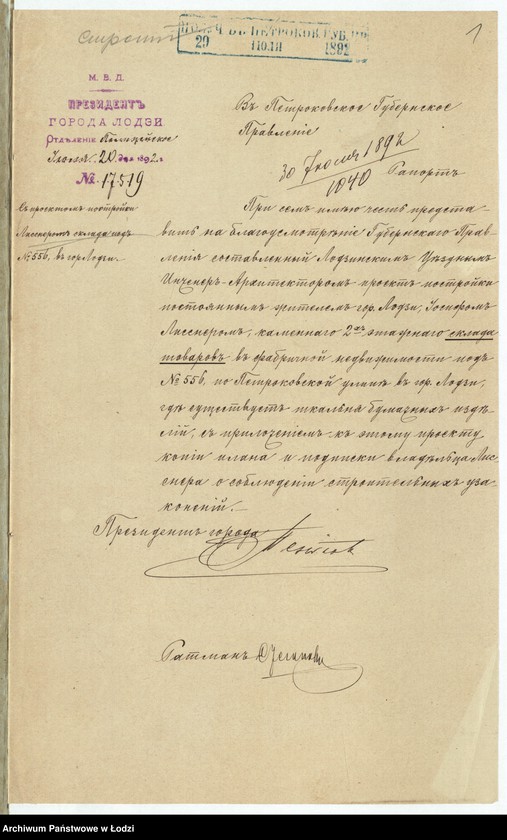 1
ПОЛУЧ. ВЪ ПЕТРОКОВ. ГУБ. ПР.
29 ІЮЛЯ 1892
М. В. Д.
ПРЕЗИДЕНТЪ
ГОРОДА ЛОДЗИ
Отдѣленіе Полицейское
Іюля 20 дня 1892 г.
№ 17519
Съ проектомъ постройки
Лисснеромъ склада подъ
№ 556, въ гор. Лодзи.
Въ Петроковское Губернское
Правленіе
30 Іюля 1892
1040
Рапортъ
При семъ имѣю честь предста-
вить на благоусмотрѣніе Губернскаго Прав-
ленія составленный Лодзинскимъ Уѣзднымъ
Инженер-Архитекторомъ проектъ постройки
постояннымъ жителемъ гор. Лодзи, Іосифомъ
Лисснеромъ, каменнаго 2хъ этажнаго склада
товаровъ въ фабричной недвижимости подъ
№ 556, по Петроковской улицѣ въ гор. Лодзи,
гдѣ существуетъ ткальня бумажныхъ издѣ-
лій, съ приложеніемъ къ этому проекту
копіи плана и подписки владѣльца Лис-
снера о соблюденіи строительныхъ уза-
коненій.
Президентъ города
Ратманъ
Archiwum Państwowe w Łodzi